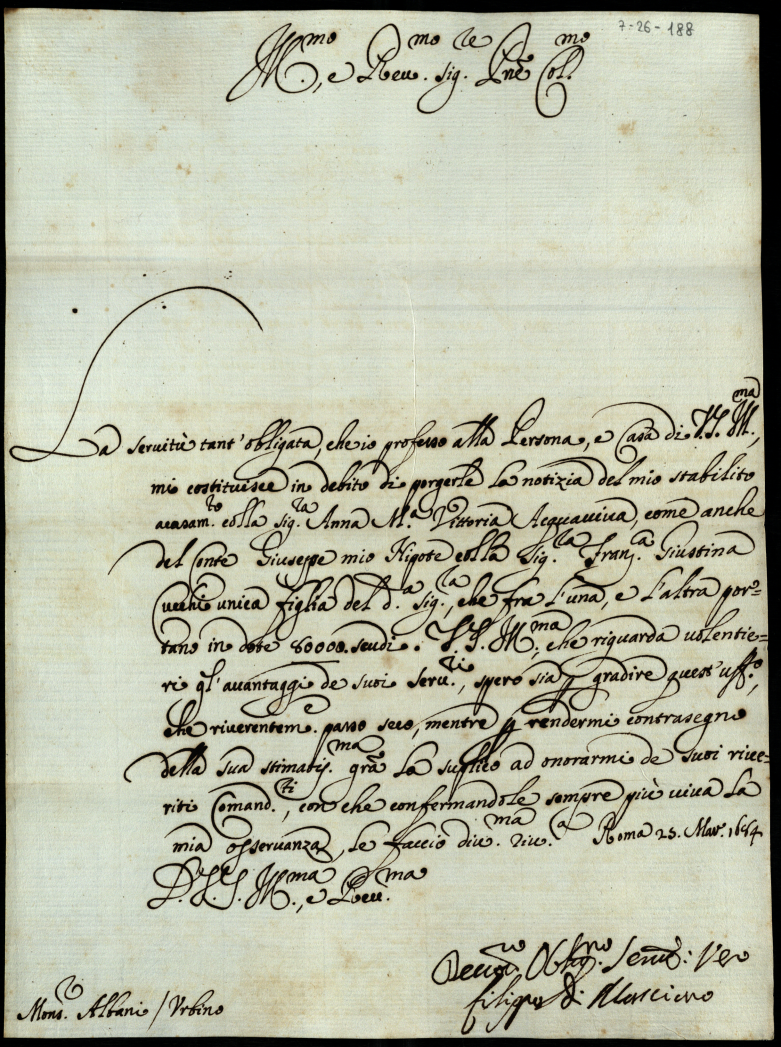 7-26-188
Ill.mo, e Rev.mo Sig.re Pne Col.mo
La servitù tant'obligata, che io professo alla Persona, e Casa di V.S. Ill.ma,
mi costituisce in debito di porgerle la notizia del mio stabilito
acasam.to colla Sig.ra Anna M.a Vittoria Acquaviva, come anche
del Conte Giuseppe mio Nipote colla Sig.ra Fran.ca Giustina
unica figlia del d.a Sig.ra, che fra l'una, e l'altra por=
tano in dote 80000. scudi. V.S. Ill.ma, che riguarda volentie=
ri gl'avantaggi de suoi Serv.ri, spero sia p gradire quest'uff.o,
che riverentem.e passo seco, mentre p rendermi contrasegno
della sua stimatis.ma gra la suplico ad onorarmi de suoi rive=
riti Comand.ti, con che confermandole sempre più viva la
mia osservanza, le faccio div.ma riv.a Roma 25. Mar. 1684
D. V.S. Ill.ma, e Rev.ma
Devot.mo Oblig.mo Serv.re Vero
Filippo
Mons.r Albani / Urbino